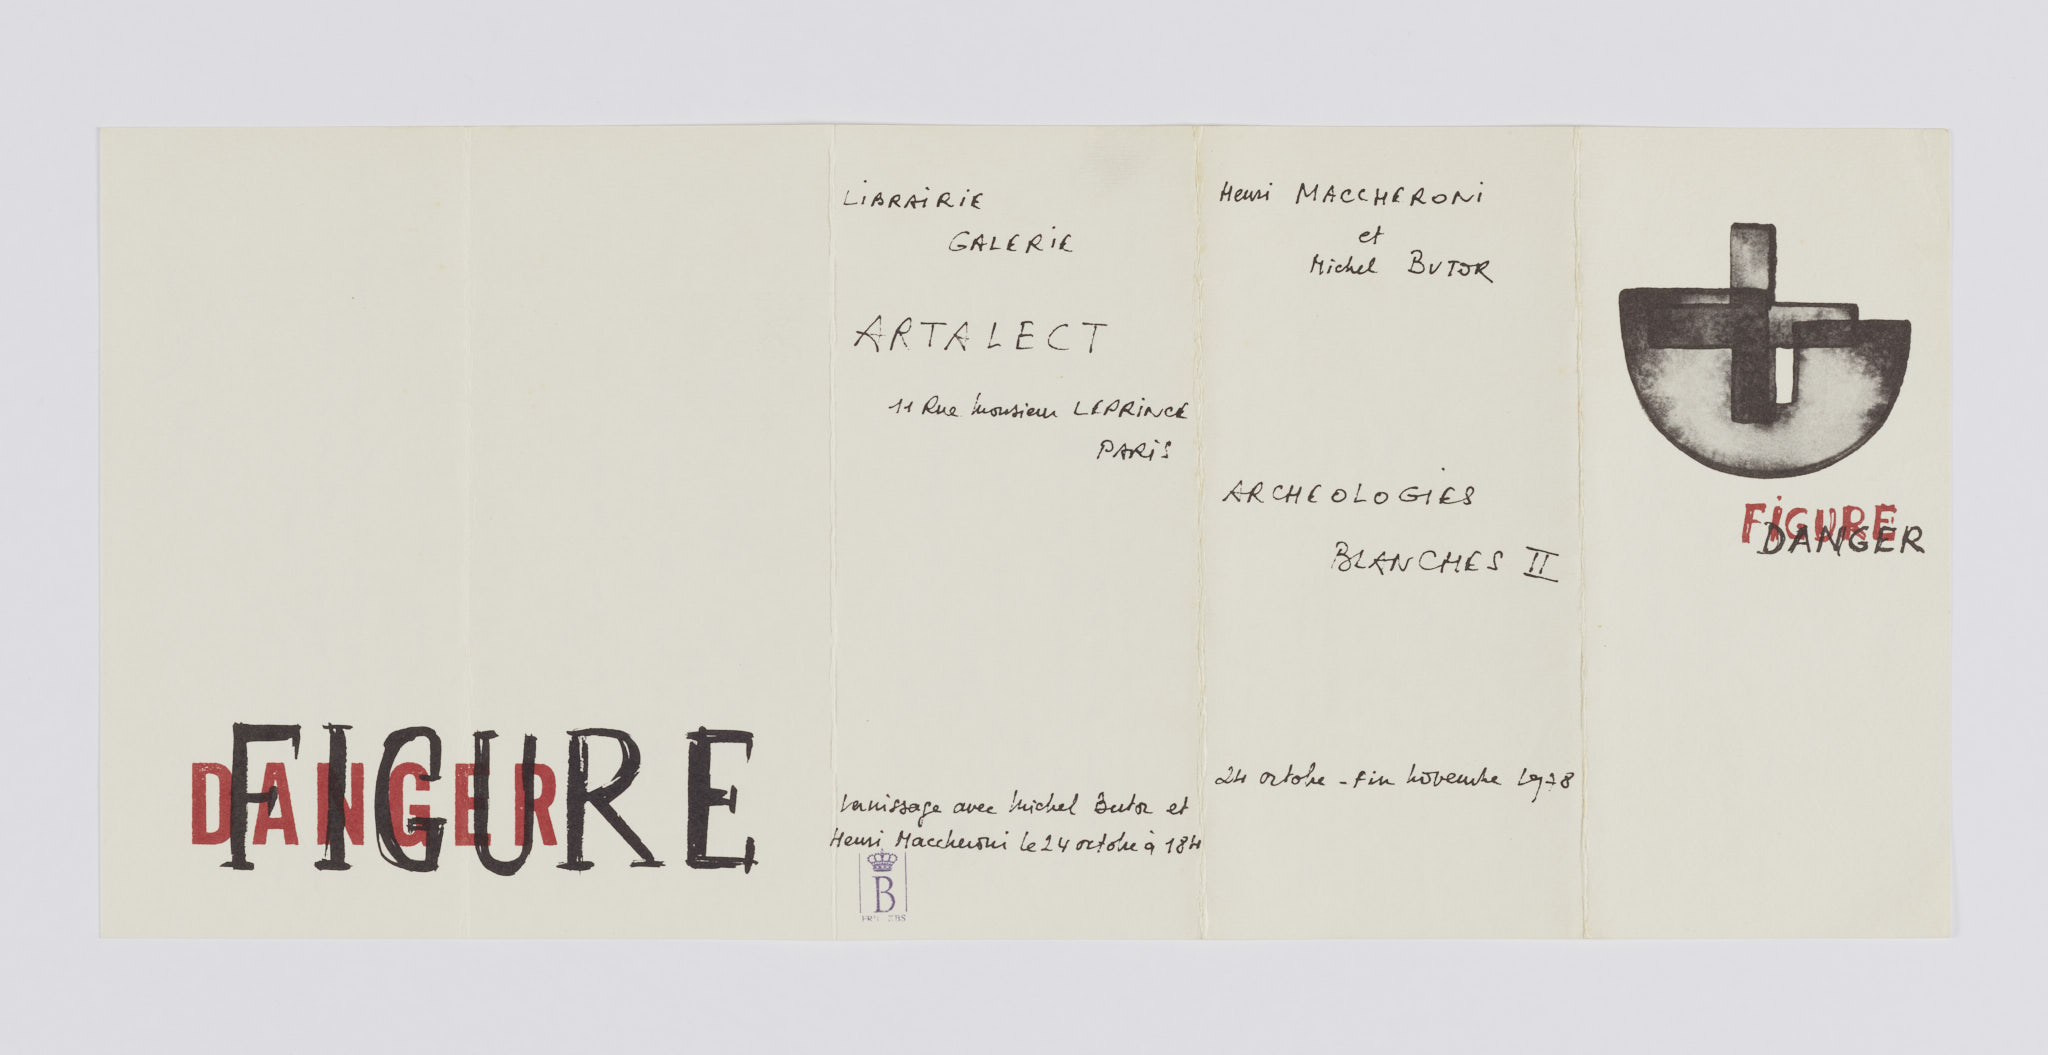 DANGER
FIGURE
LIBRAIRIE
GALERIE
ARTALECT
11 Rue Monsieur LEPRINCE
PARIS
Vernissage avec Michel Butor et
Henri Maccheroni le 24 octobre à 18H
B
Henri MACCHERONI
et
Michel BUTOR
ARCHEOLOGIES
BLANCHES II
24 octobre - fin novembre 1978
FIGURE
DANGER